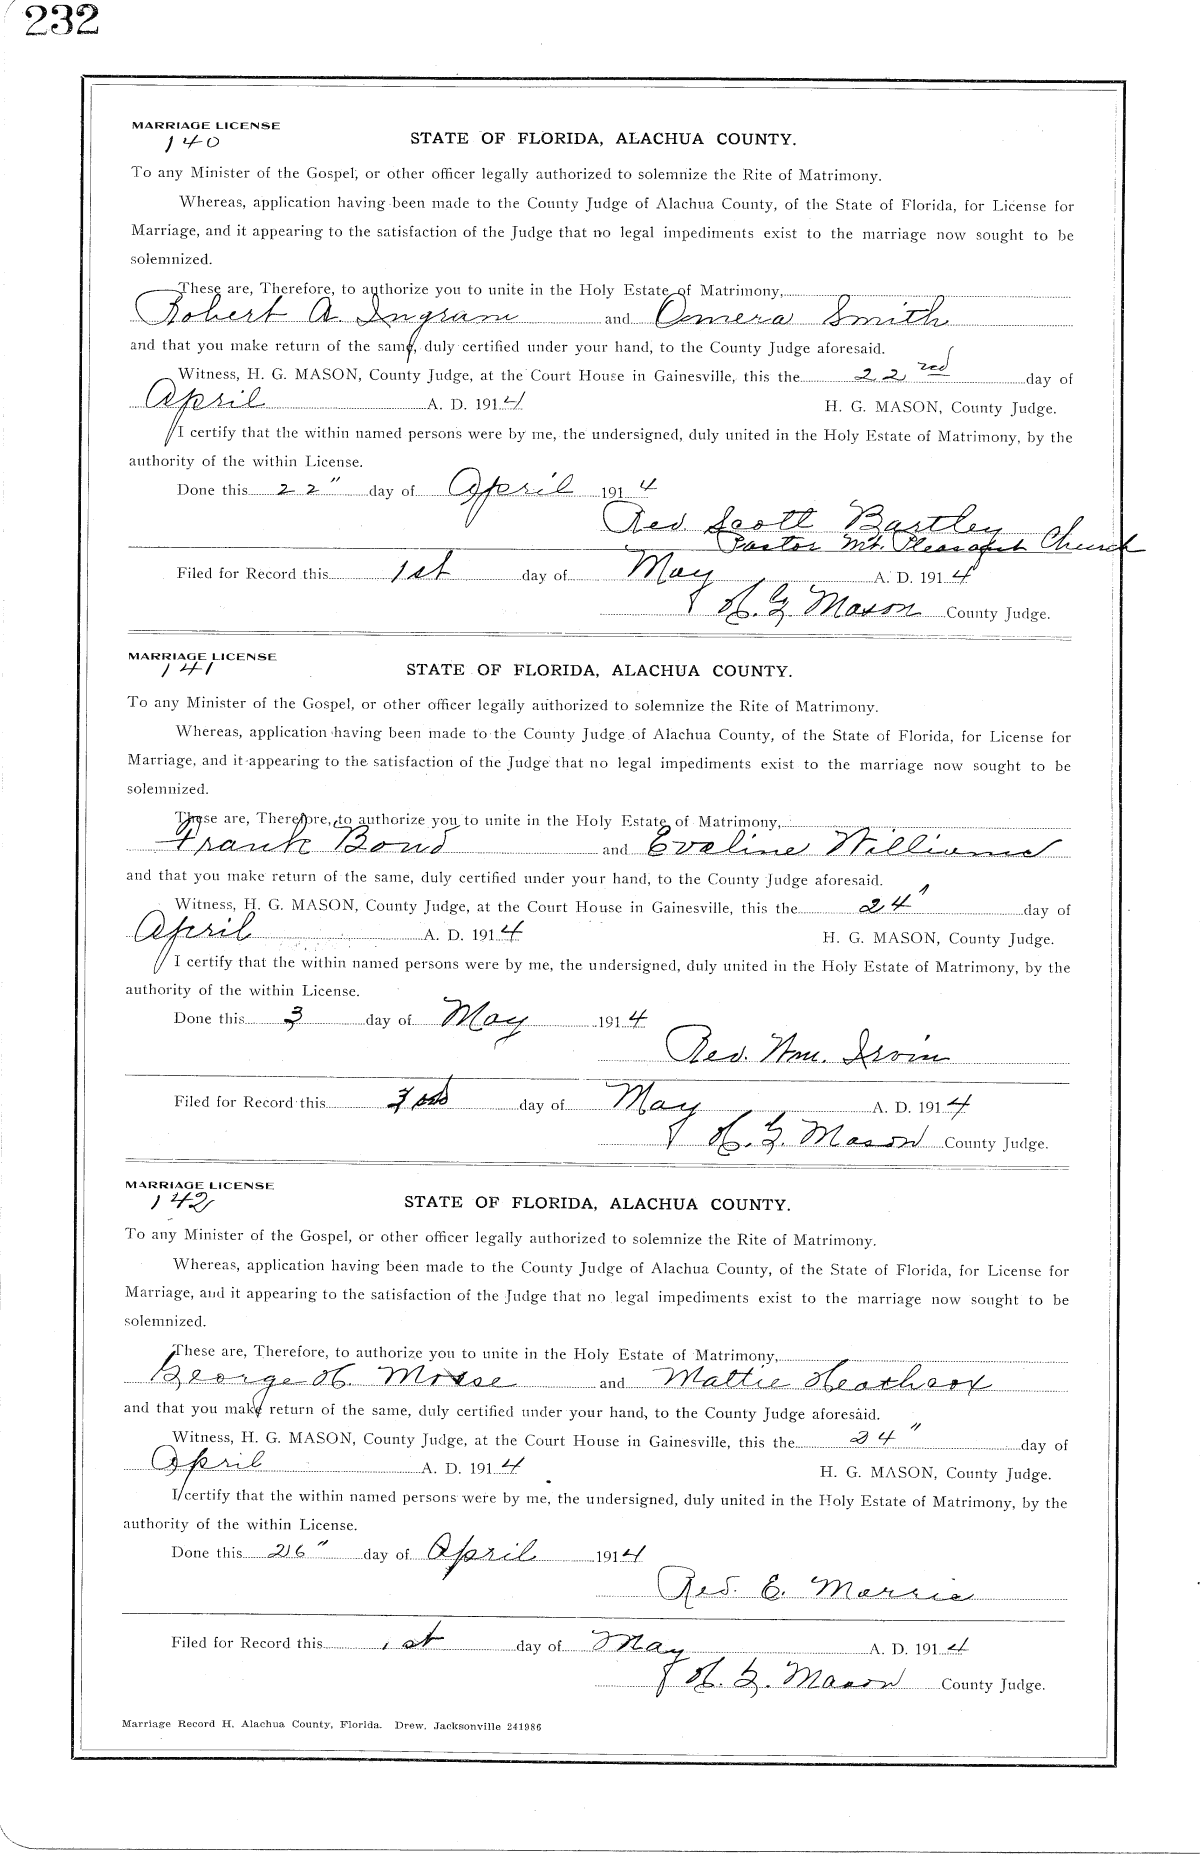 232
MARRIAGE LICENSE
140
STATE OF FLORIDA, ALACHUA COUNTY.
To any Minister of the Gospel, or other officer legally authorized to solemnize the Rite of Matrimony.
Whereas, application having been made to the County Judge of Alachua County, of the State of Florida, for License for
Marriage, and it appearing to the satisfaction of the Judge that no legal impediments exist to the marriage now sought to be
solemnized.
These are, Therefore, to authorize you to unite in the Holy Estate of Matrimony,
Robert A. Ingram and Omera Smith
and that you make return of the same, duly certified under your hand, to the County Judge aforesaid.
Witness, H. G. MASON, County Judge, at the Court House in Gainesville, this the 22nd day of
April A. D. 1914 H. G. MASON, County Judge.
I certify that the within named persons were by me, the undersigned, duly united in the Holy Estate of Matrimony, by the
authority of the within License.
Done this 22" day of April 1914
Rev Scott Bartley
Pastor Mt. Pleasant Church
Filed for Record this 1st day of May A. D. 1914
H. G. Mason County Judge.
MARRIAGE LICENSE
141
STATE OF FLORIDA, ALACHUA COUNTY.
To any Minister of the Gospel, or other officer legally authorized to solemnize the Rite of Matrimony.
Whereas, application having been made to the County Judge of Alachua County, of the State of Florida, for License for
Marriage, and it appearing to the satisfaction of the Judge that no legal impediments exist to the marriage now sought to be
solemnized.
These are, Therefore, to authorize you to unite in the Holy Estate of Matrimony,
Frank Bond and Evaline Williams
and that you make return of the same, duly certified under your hand, to the County Judge aforesaid.
Witness, H. G. MASON, County Judge, at the Court House in Gainesville, this the 24" day of
April A. D. 1914 H. G. MASON, County Judge.
I certify that the within named persons were by me, the undersigned, duly united in the Holy Estate of Matrimony, by the
authority of the within License.
Done this 3 day of May 1914
Rev. Wm. Irvin
Filed for Record this day of May A. D. 1914
H. G. Mason County Judge.
MARRIAGE LICENSE
142
STATE OF FLORIDA, ALACHUA COUNTY.
To any Minister of the Gospel, or other officer legally authorized to solemnize the Rite of Matrimony.
Whereas, application having been made to the County Judge of Alachua County, of the State of Florida, for License for
Marriage, and it appearing to the satisfaction of the Judge that no legal impediments exist to the marriage now sought to be
solemnized.
These are, Therefore, to authorize you to unite in the Holy Estate of Matrimony,
George H. and Mattie Heathcox
and that you make return of the same, duly certified under your hand, to the County Judge aforesaid.
Witness, H. G. MASON, County Judge, at the Court House in Gainesville, this the 24" day of
April A. D. 1914 H. G. MASON, County Judge.
I certify that the within named persons were by me, the undersigned, duly united in the Holy Estate of Matrimony, by the
authority of the within License.
Done this 26" day of April 1914
Rev. E. Morris
Filed for Record this 1st day of May A. D. 1914
H. G. Mason County Judge.
Marriage Record H, Alachua County, Florida. Drew, Jacksonville 241986